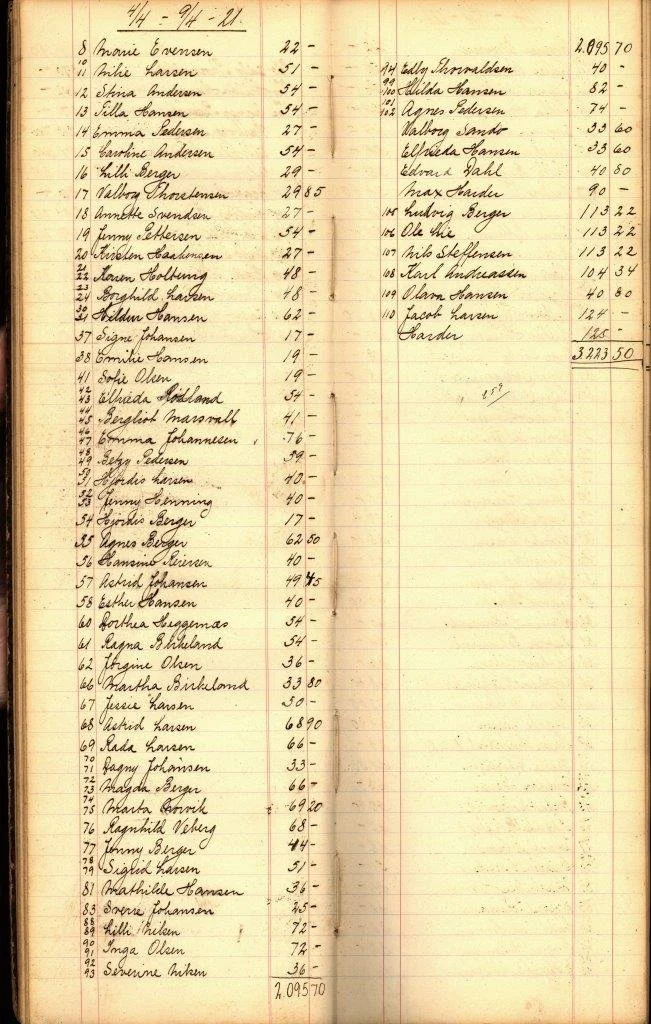 4/4 - 9/4 - 21.
8 Marie Evensen 22 -
10 11 Milie Larsen 51 -
12 Stina Andersen 54 -
13 Tilla Hansen 54 -
14 Emma Pedersen 27 -
15 Caroline Andersen 54 -
16 Lilli Berger 29 -
17 Valborg Thorstensen 29 85
18 Annette Svendsen 27 -
19 Jenny Pettersen 54 -
20 Kirsten Haakensen 27 -
21 22 Karen Holberg 48 -
23 24 Borghild Larsen 48 -
30 31 Hildur Hansen 62 -
37 Signe Johansen 17 -
38 Emilie Hansen 19 -
41 Sofie Olsen 19 -
42 43 Elfrieda Rödland 54 -
44 45 Bergliot Marsvall 41 -
46 47 Emma Johannesen 76 -
48 49 Betzy Pedersen 59 -
50 51 Hjördis Larsen 40 -
52 53 Jenny Henning 40 -
54 Hjördis Berger 17 -
55 Agnes Berger 62 50
56 Hansine Reiersen 40 -
57 Astrid Johansen 49 45
58 Esther Hansen 40 -
60 Dorthea Heggernæs 54 -
61 Ragna Birkeland 54 -
62 Jörgine Olsen 36 -
66 Martha Birkeland 33 80
67 Jessie Larsen 50 -
68 Astrid Larsen 68 90
69 Rada Larsen 66 -
70 71 Dagny Johansen 33 -
72 73 Magda Berger 66 -
74 75 Marta 69 20
76 Ragnhild Veberg 68 -
77 Jenny Berger 44 -
78 79 Sigrid Larsen 51 -
81 Mathilde Hansen 36 -
83 Sverre Johansen 25 -
88 89 Lilli Nilsen 72 -
90 91 Inga Olsen 72 -
92 93 Severine Nilsen 36 -
2.095 70
2.095 70
94 Edby Thorvaldsen 40 -
99 100 Hilda Hansen 82 -
101 102 Agnes Pedersen 74 -
Valborg Sandö 33 60
Elfrieda Hansen 33 60
Edvard Dahl 40 80
Max Harder 90 -
105 Ludvig Berger 113 22
106 Ole Lie 113 22
107 Nils Steffensen 113 22
108 Karl Andreassen 104 34
109 Olava Hansen 40 80
110 Jacob Larsen 124 -
Harder 125 -
3.223 50